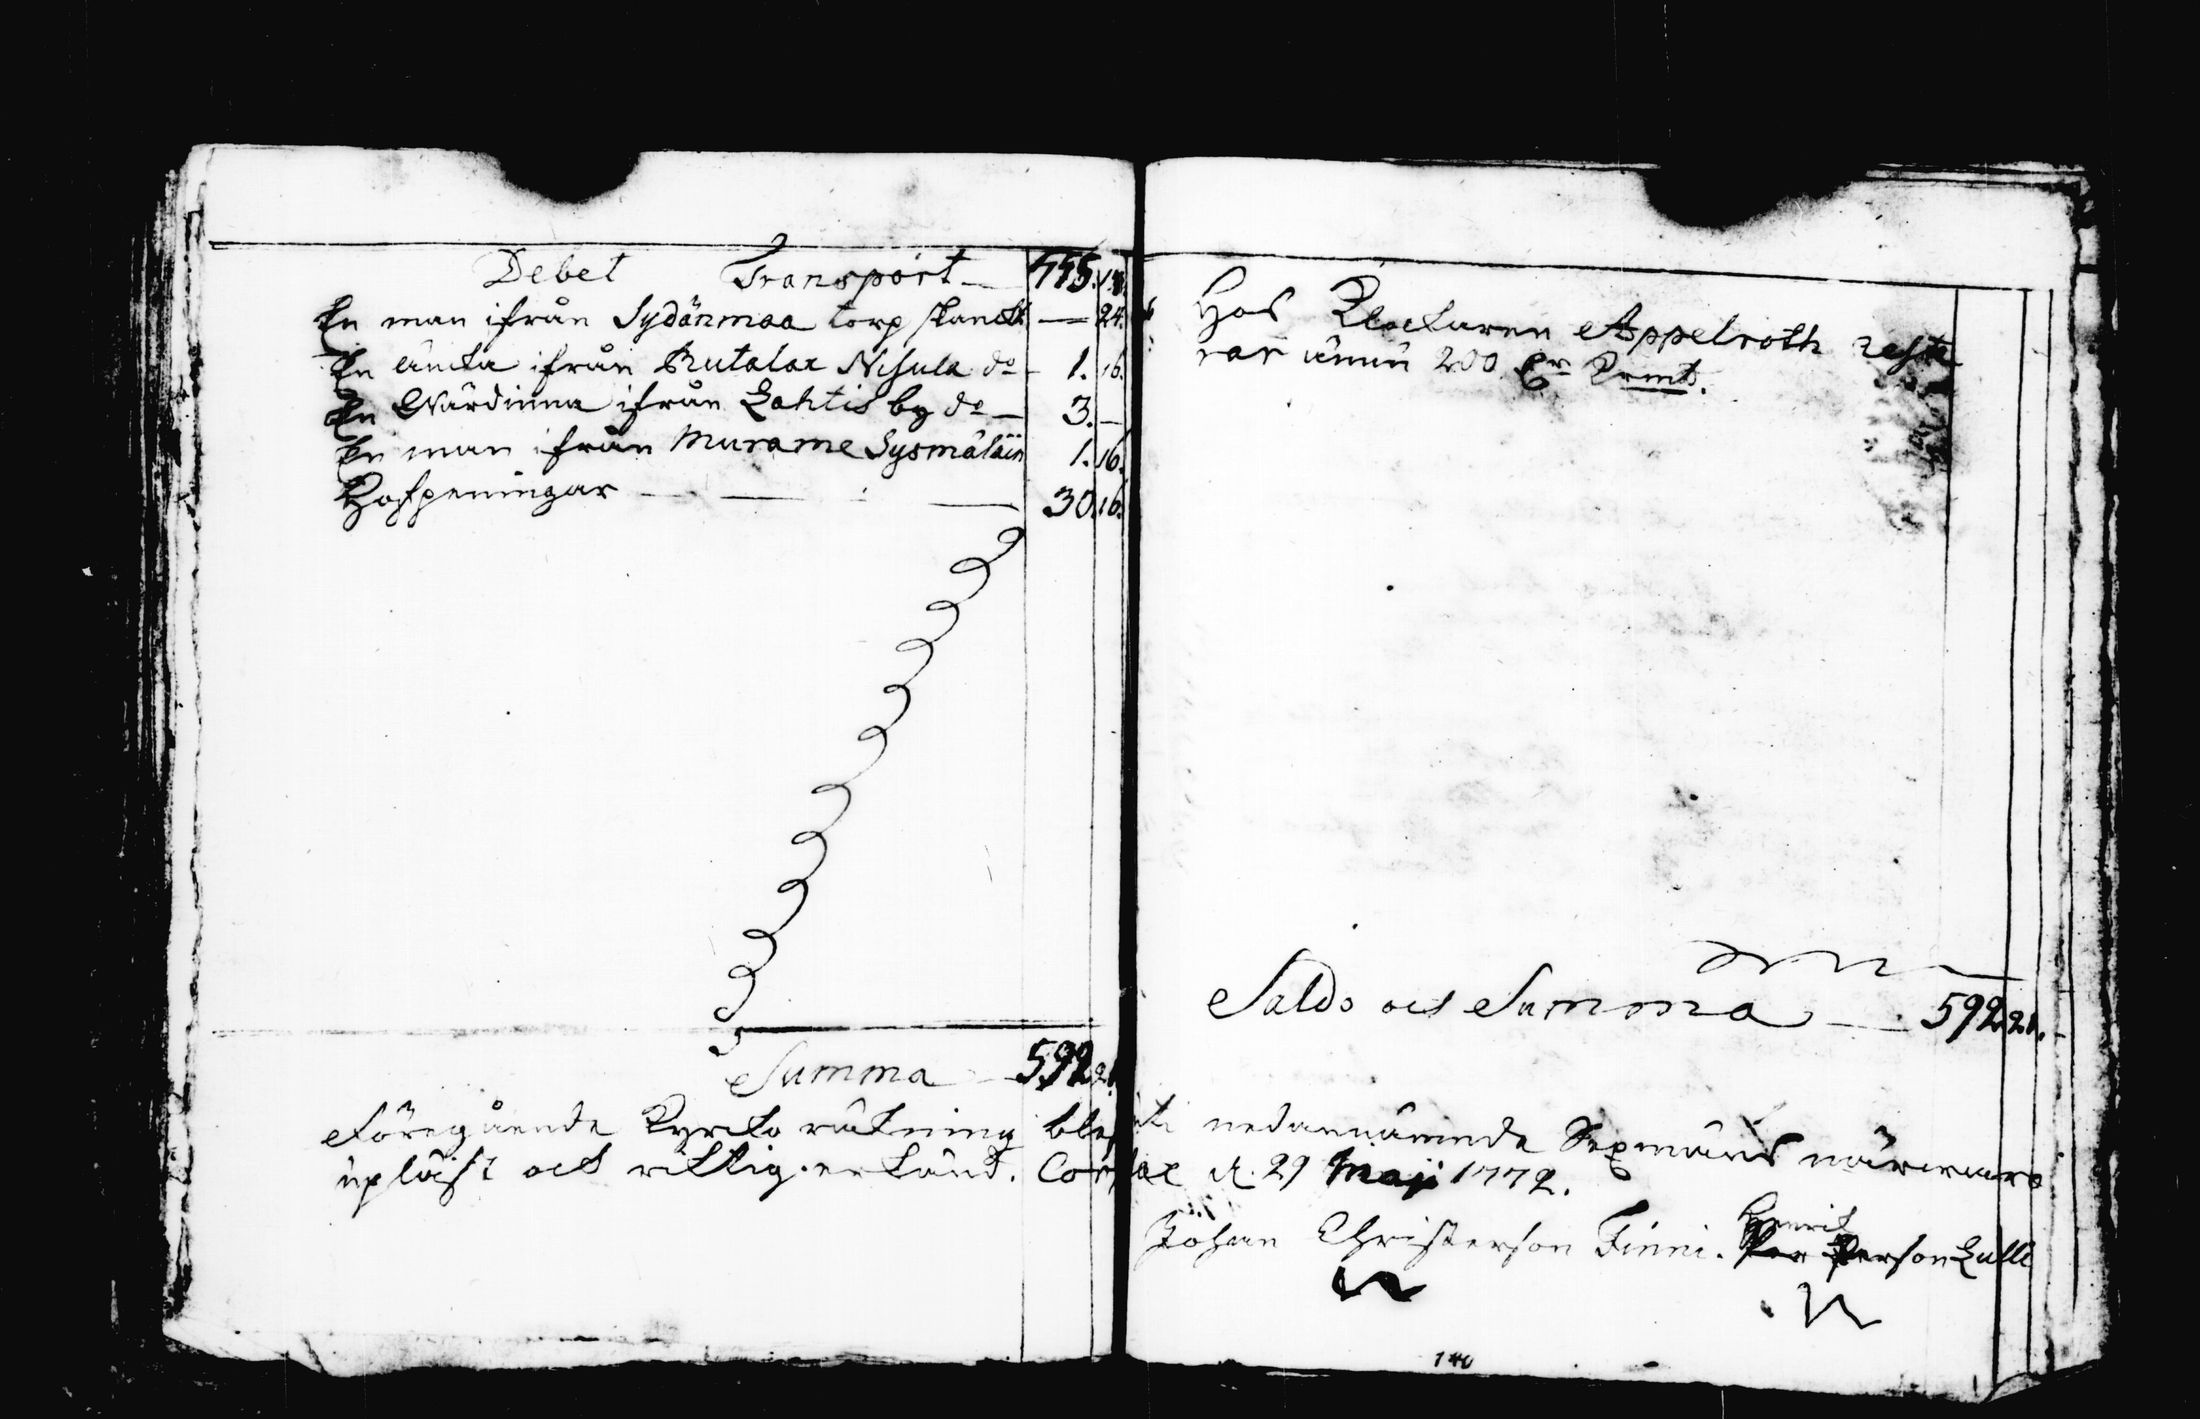 Debet Transport — 555. 18.
En man ifrån Sydänmaa torp skänckt — 24.
En änka ifrån Rutalax Nisula do — 1. 16.
En Wärdinna ifrån Lahtis by do — 3. —
En man ifrån Murame Sysmäläin 1. 16.
Hofpeningar — — — 30. 16.
Summa — 592. 21
Hos Klockaren Appelroth reste
rar ännu 200 Dr Kmt.
Saldo och Summa — 592. 21.
Föregående Kyrcko räkning blef uti nedannämde Sexmäns närwaro
upläst och richtig erkänd. Corpilax d. 29 Maji 1772.
Johan Christerson Finni. Henrich Person Lulli
140